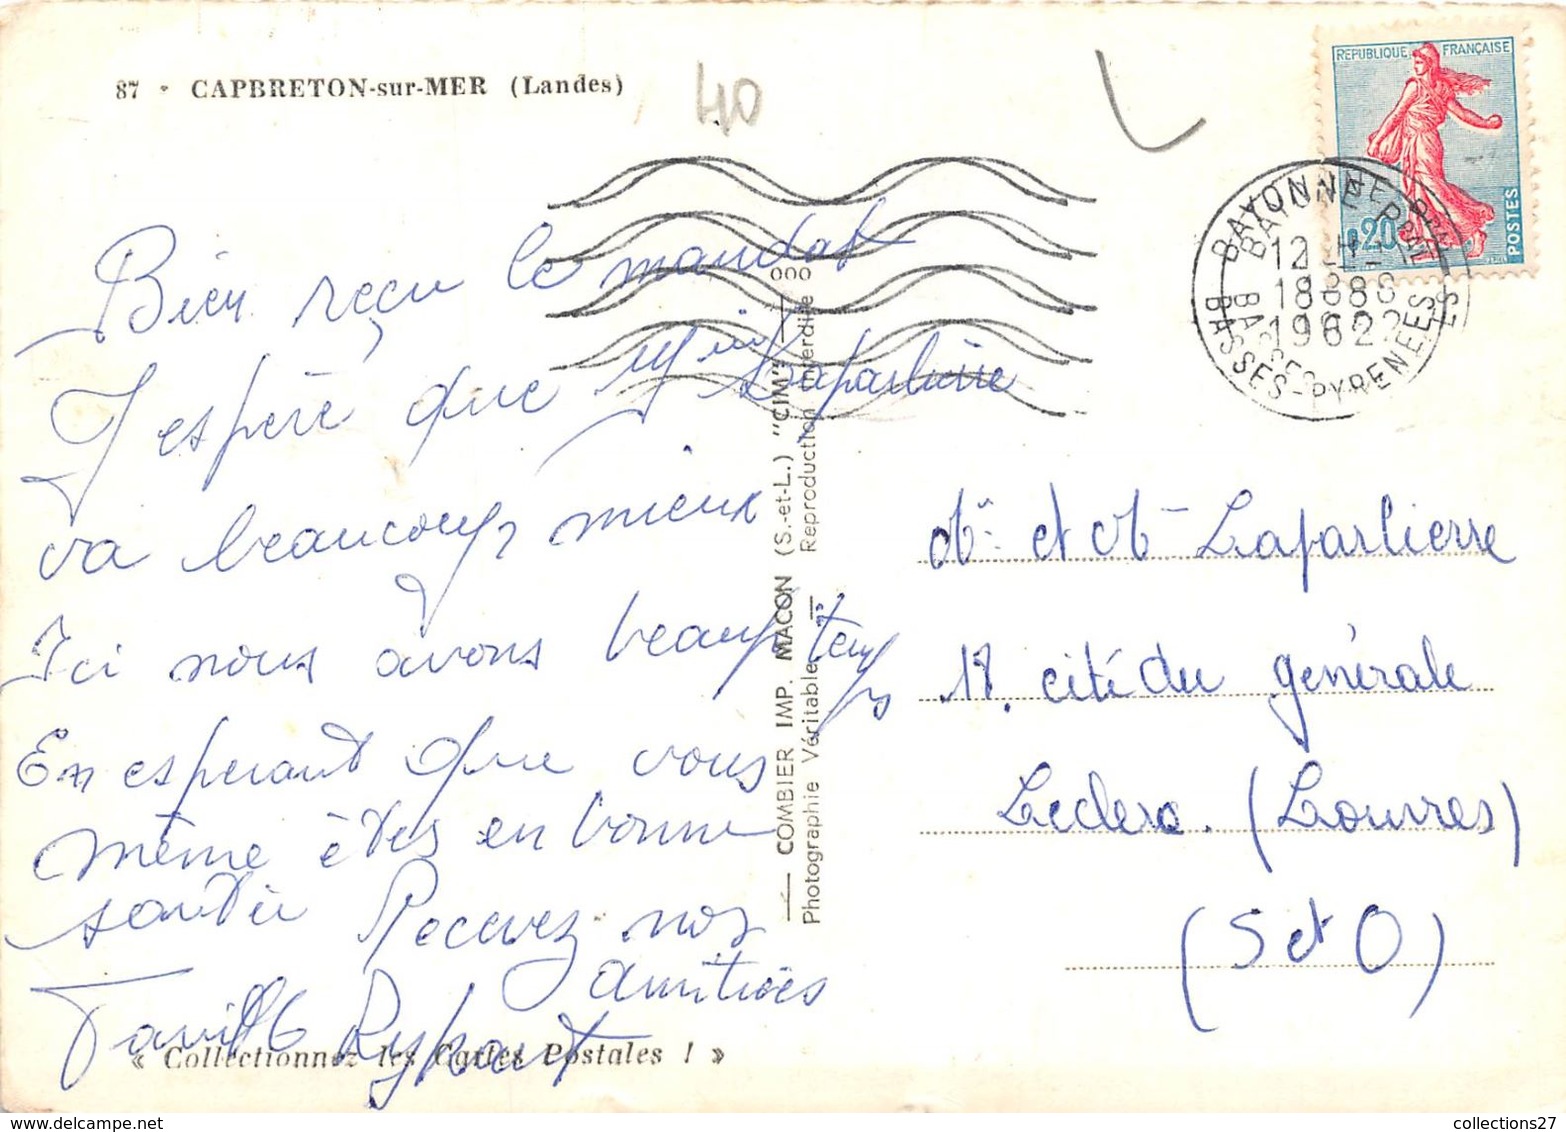 87 • CAPBRETON-sur-MER (Landes)
40
REPUBLIQUE FRANÇAISE
0,20
POSTES
BAYONNE
12 H
18 8
1962
BASSES-PYRENEES
Bien reçu le mandat
J espère que Laparlierre
va beaucoup mieux
Ici nous avons beau temps
En esperant que vous
même êtes en bonne
santée Recevez nos
amitiées
Famille
« Collectionnez les Cartes Postales ! »
— COMBIER IMP. MACON (S.-et-L.) "CIM" —
Photographie Véritable — Reproduction interdite
000
Mr et Me Laparlierre
17. cité du générale
Leclerc. (Louvres)
(S et O)
collections27